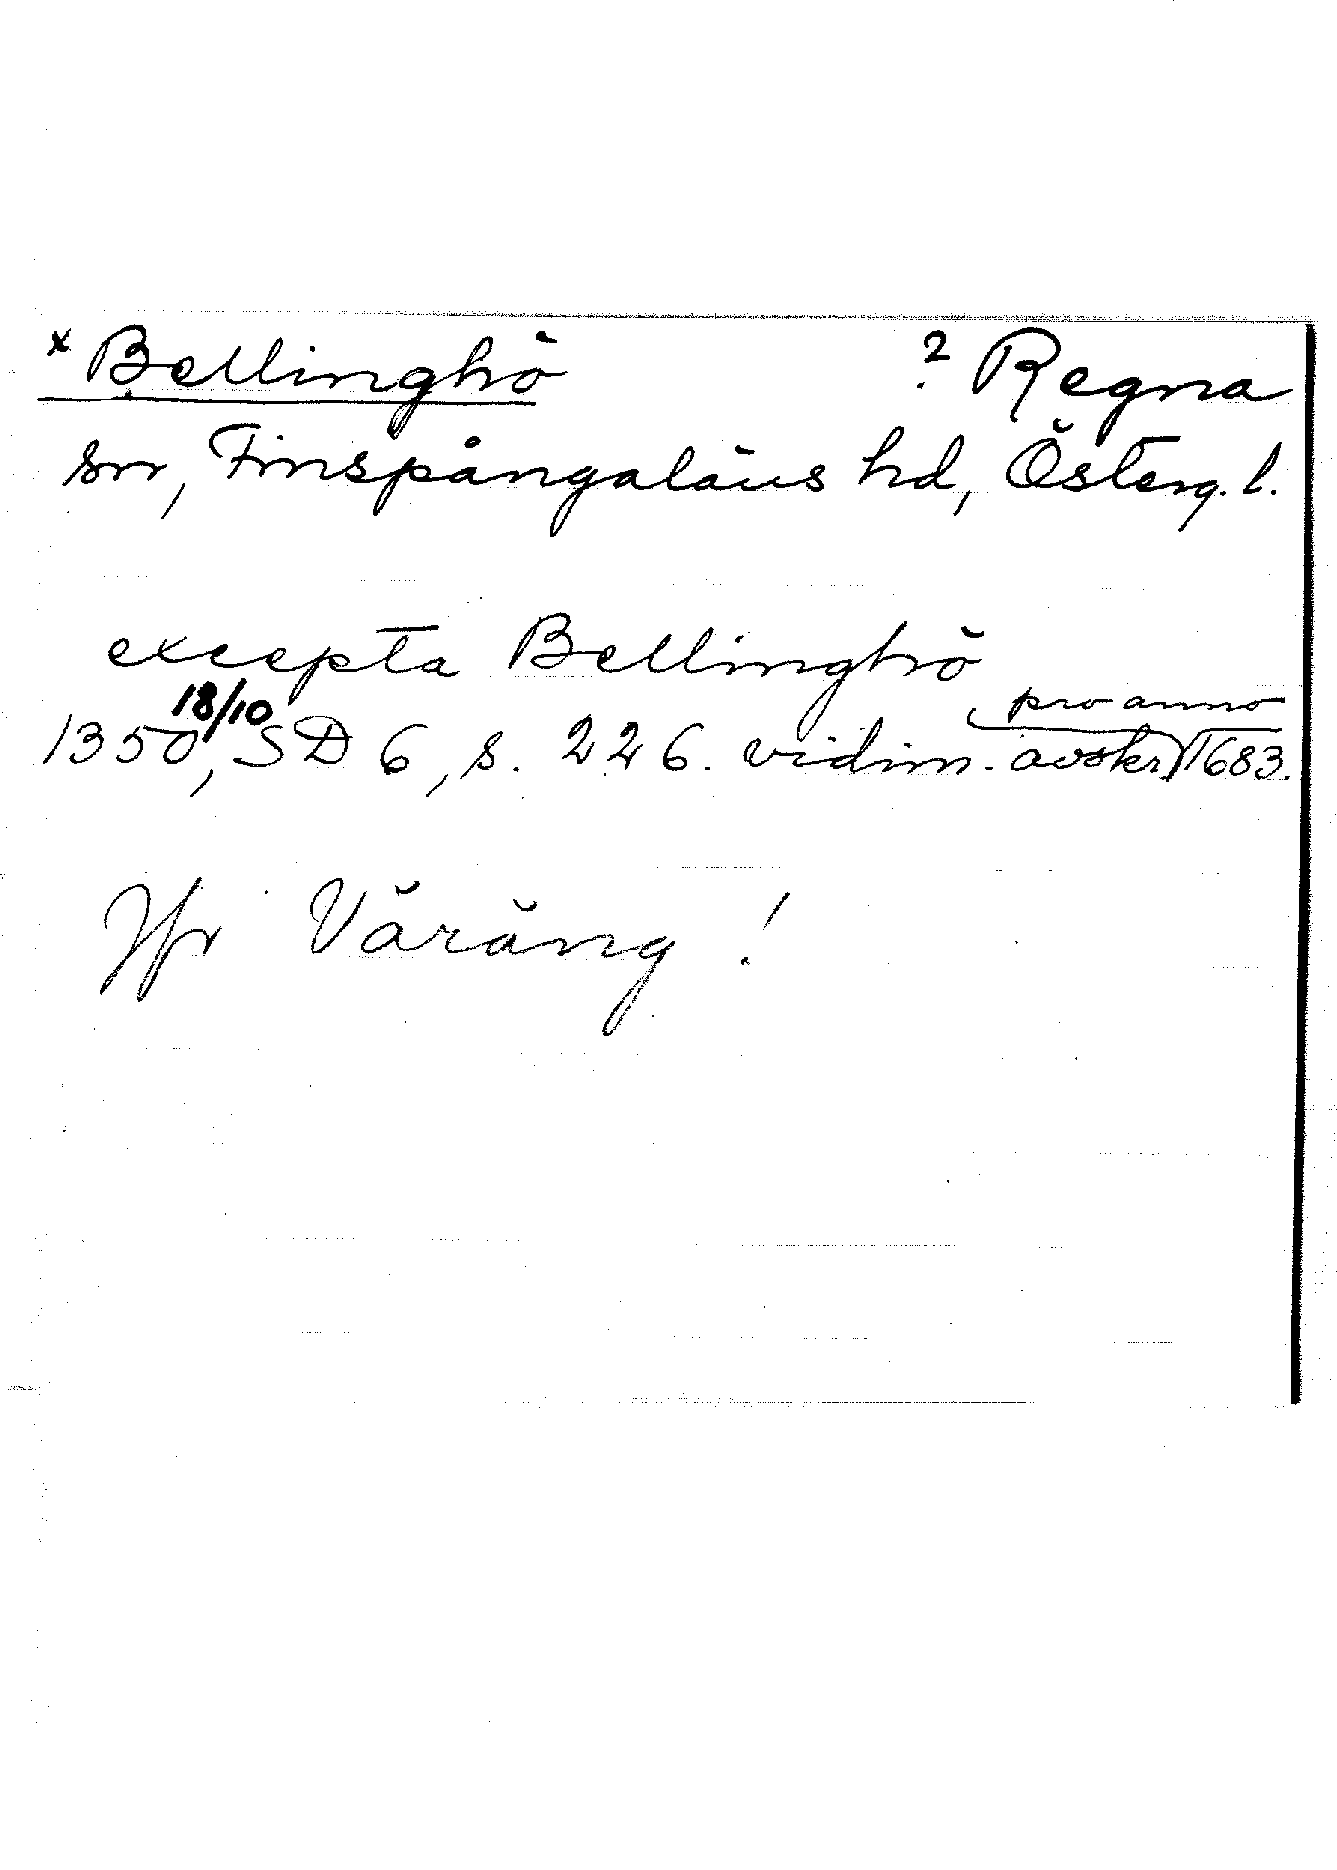 x Bellinghö ? Regna
sn, Finspångaläns hd, Österg. l.
excepta Bellinghö
1350 18/10, SD 6, s. 226. vidim. avskr. pro anno 1683.
Jfr Väräng!